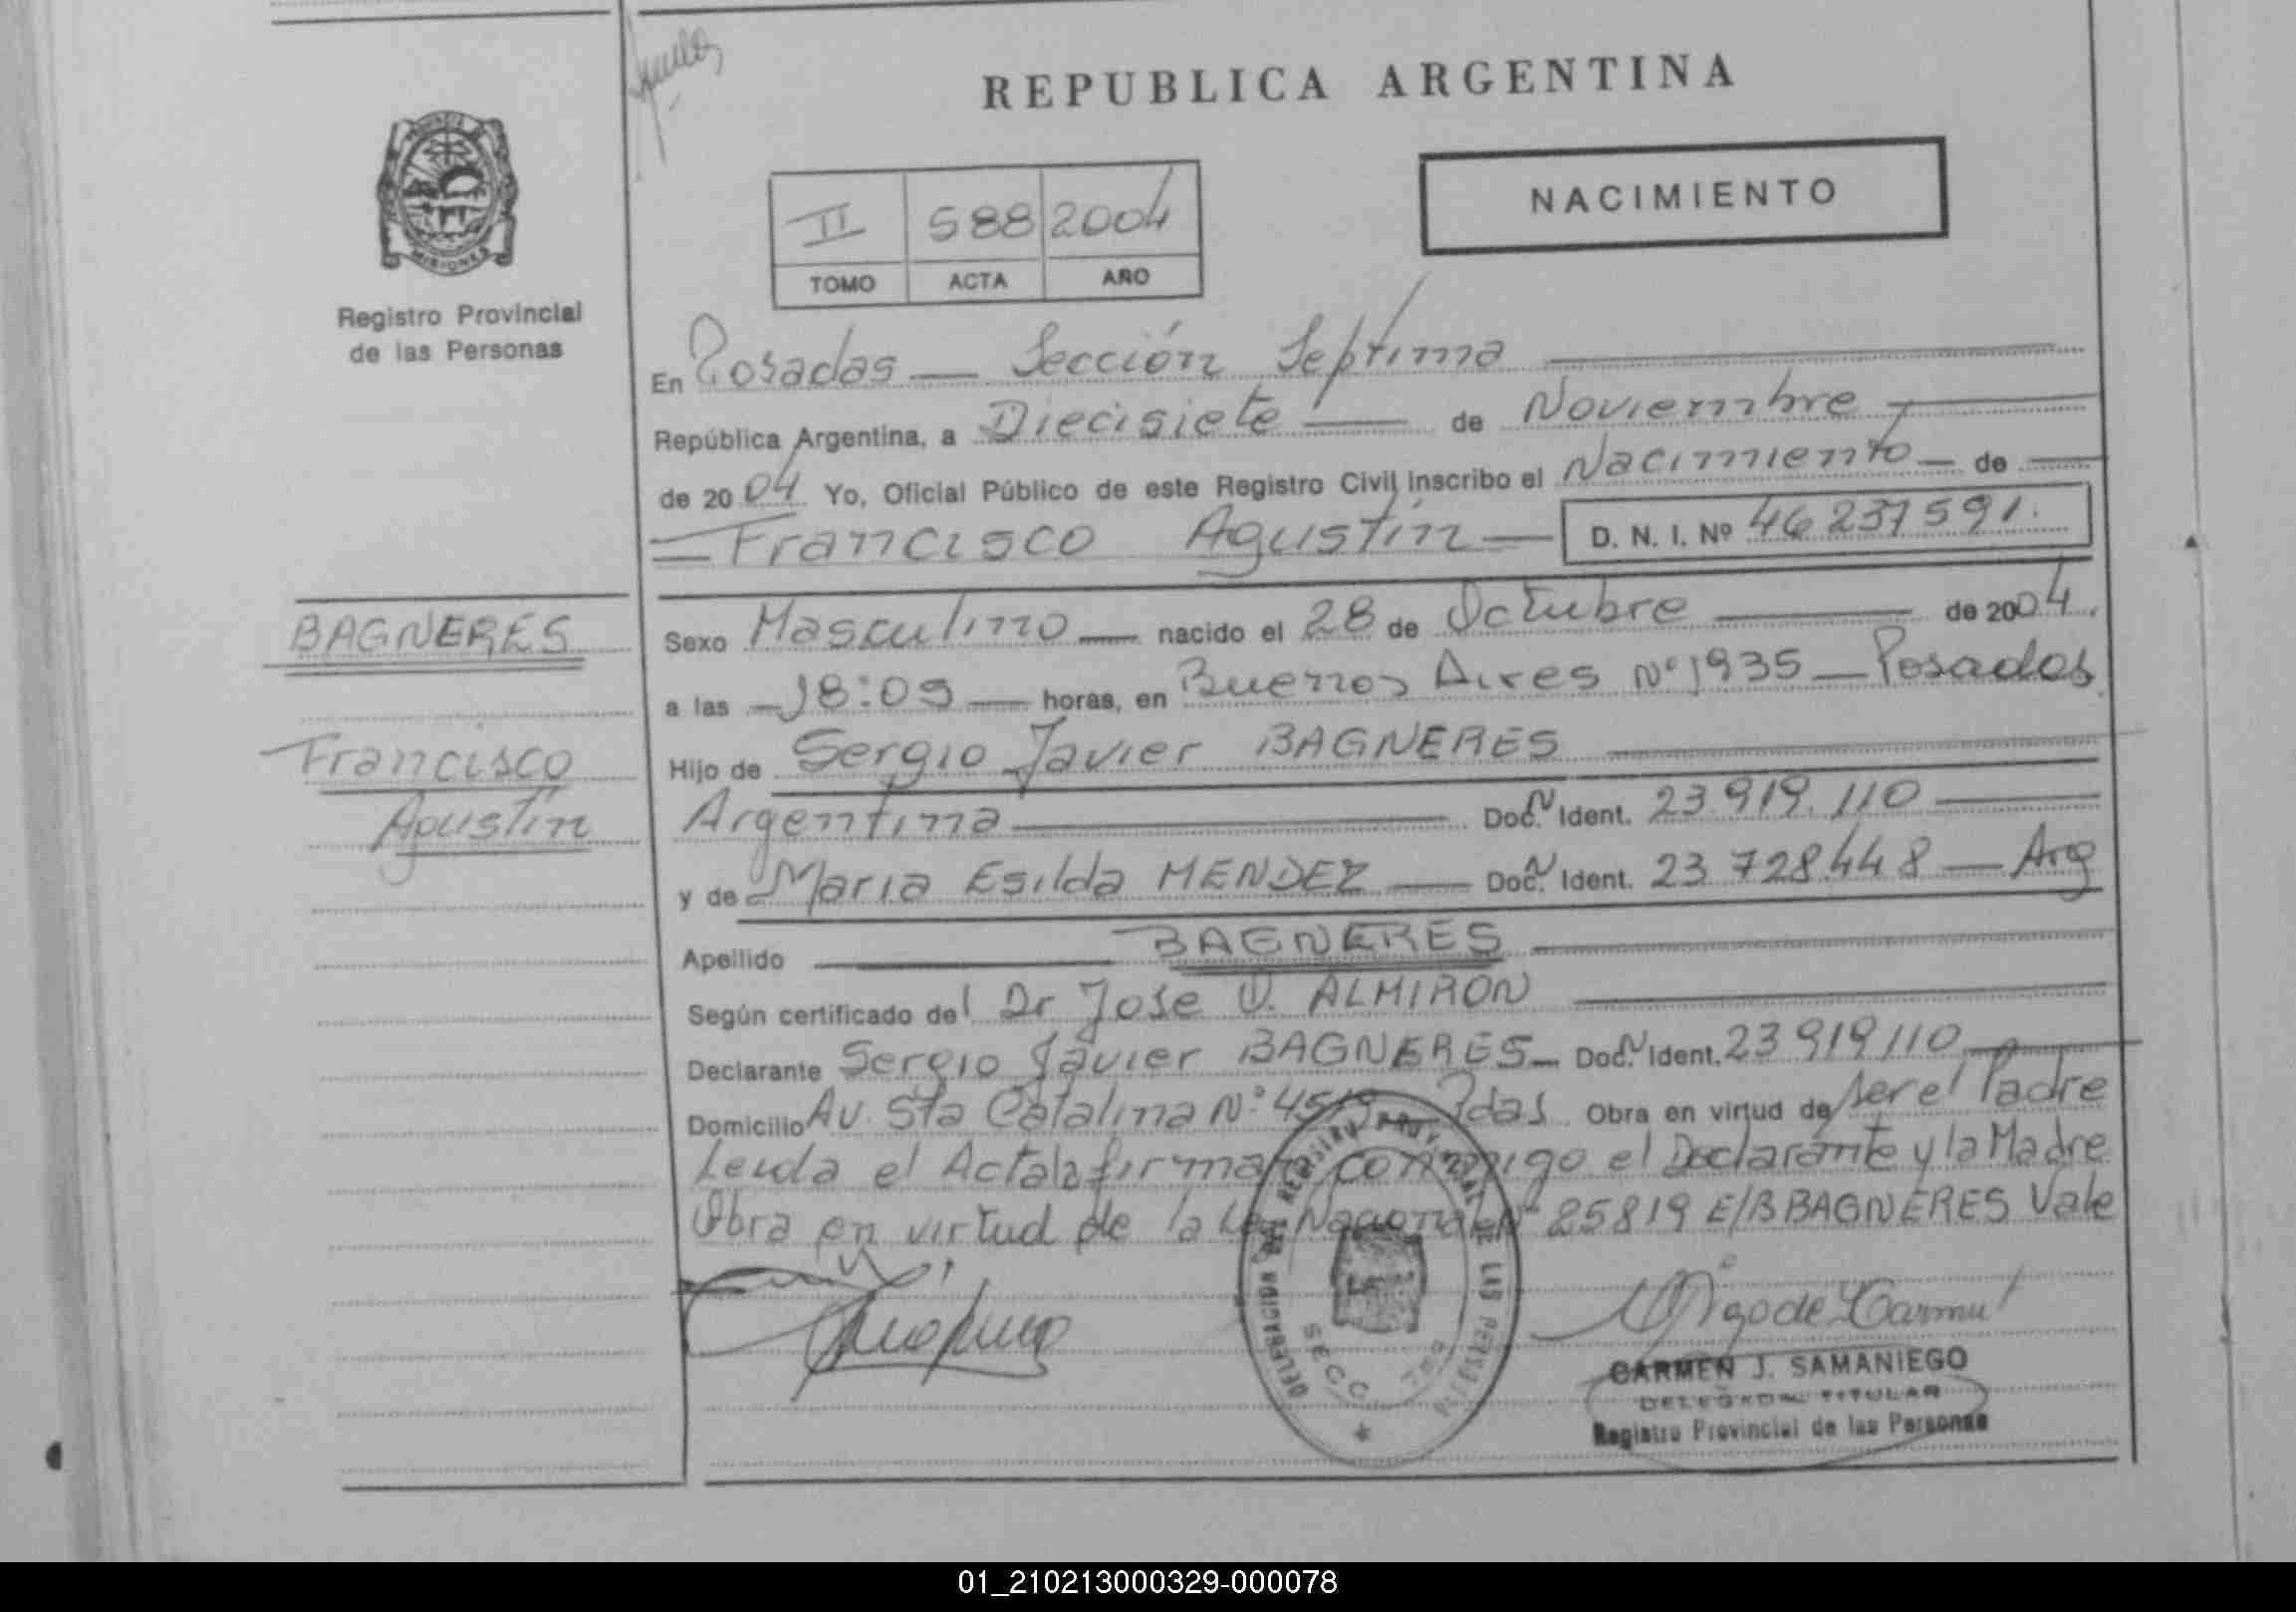 REPUBLICA ARGENTINA
PROVINCIA DE
MISIONES
Registro Provincial
de las Personas
NACIMIENTO
II 588 2004
TOMO ACTA AÑO
En Posadas — Sección Septima
República Argentina, a Diecisiete — de Noviembre
de 2004 Yo, Oficial Público de este Registro Civil inscribo el Nacimiento — de
Francisco Agustín — D. N. I. Nº 46 237 591.
BAGNERES
Francisco
Agustín
Sexo Masculino — nacido el 28 de Octubre — de 2004.
a las — 18:05 — horas, en Buenos Aires Nº 1935 — Posadas
Hijo de Sergio Javier BAGNERES
Argentina — Doc. N Ident. 23.919.110
y de Maria Esilda MENDEZ — Doc. N Ident. 23 728 448 — Arg
Apellido — BAGNERES
Según certificado del Dr Jose O. ALMIRON
Declarante Sergio Javier BAGNERES — Doc. N Ident. 23 919 110
Domicilio Av. Sta Catalina Nº Pdas Obra en virtud de ser el Padre
Leida el Acta la firman conmigo el Declarante y la Madre
Obra en virtud de la Ley Nacional Nº 25819 E/B BAGNERES Vale
DELEGACION DEL REGISTRO PROVINCIAL DE LAS PERSONAS
SECC. 7
CARMEN J. SAMANIEGO
DELEGADA TITULAR
Registro Provincial de las Personas
01_210213000329-000078